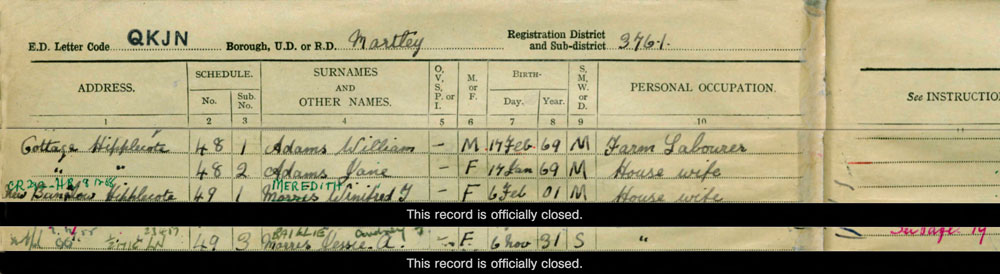 E.D. Letter Code QKJN Borough, U.D. or R.D. Martley Registration District and Sub-district 376/1.
ADDRESS. SCHEDULE. No. Sub. No. SURNAMES AND OTHER NAMES. O, V, S, P, or I. M. or F. BIRTH- Day. Year. S, M, W, or D. PERSONAL OCCUPATION. See INSTRUCTIO
1 2 3 4 5 6 7 8 9 10 11
Cottage Hipplecote 48 1 Adams William – M 17 Feb 69 M Farm Labourer
" " 48 2 Adams Jane – F 17 Jan 69 M House wife
MEREDITH
Hipplecote 49 1 Morris Winifred F – F 6 Feb 01 M House wife
This record is officially closed.
BAILLIE Audrey
49 3 Morris Jessie A. – F. 6 Nov 31 S " See page 19
This record is officially closed.